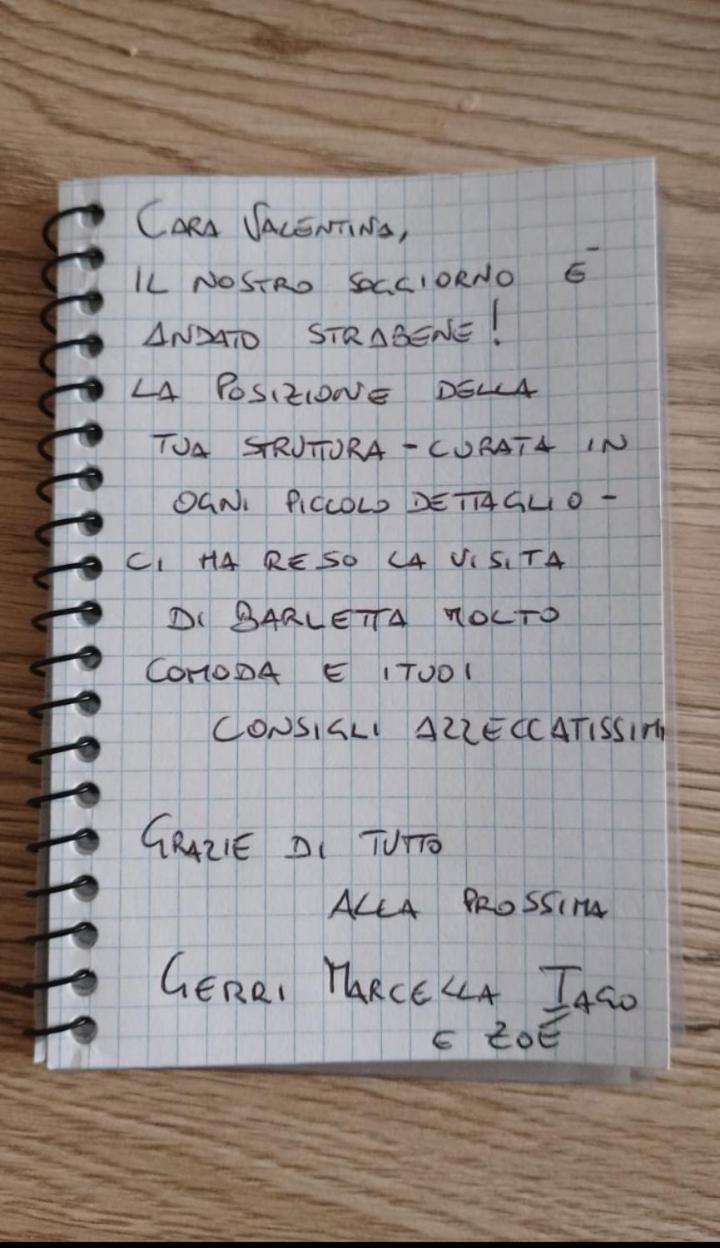 CARA VALENTINA,
IL NOSTRO SOGGIORNO È
ANDATO STRABENE!
LA POSIZIONE DELLA
TUA STRUTTURA - CURATA IN
OGNI PICCOLO DETTAGLIO -
CI HA RESO LA VISITA
DI BARLETTA MOLTO
COMODA E I TUOI
CONSIGLI AZZECCATISSIMI
GRAZIE DI TUTTO
ALLA PROSSIMA
GERRI MARCELLA IAGO
E ZOE